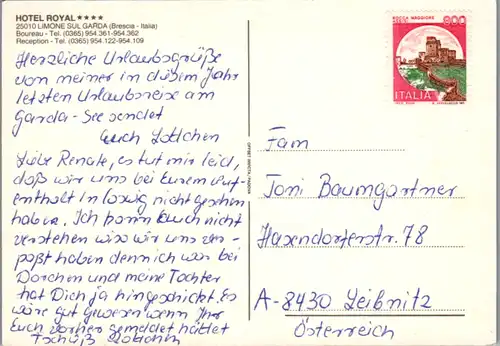 HOTEL ROYAL★★★★
25010 LIMONE SUL GARDA (Brescia - Italia)
Boureau - Tel. (0365) 954.361-954.362
Reception - Tel. (0365) 954.122-954.109
Herzliche Urlaubsgrüße
von meiner in diesem Jahr
letzten Urlaubsreise am
Garda-See sendet
Euch Lottchen
Liebe Renate, es tut mir leid,
daß wir uns bei Eurem Auf-
enthalt in nicht gesehen
haben. Ich kann Euch nicht
verstehen wiso wir uns ver-
paßt haben denn ich war bei
Dorchen und meine Tochter
hat Dich ja hingeschickt. Es
wäre gut gewesen wenn Ihr
Euch vorher gemeldet hättet
Tschüß Lottchen
ROCCA MAGGIORE
ASSISI
900
ITALIA
Fam
Toni Baumgartner
Hasendorferstr. 78
A-8430 Leibnitz
Österreich